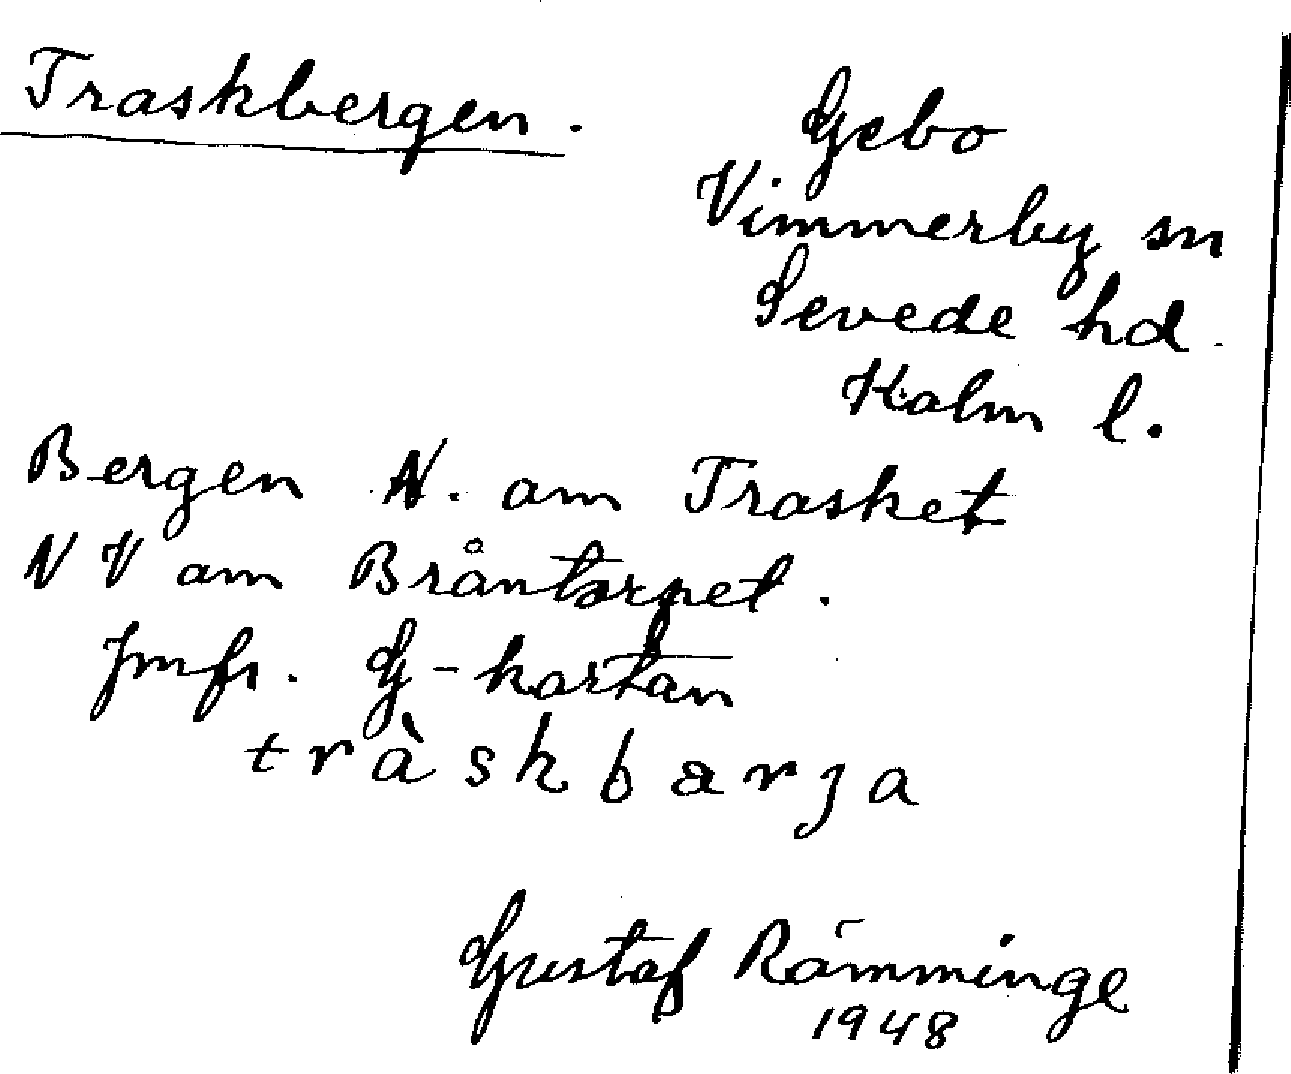 Traskbergen.
Gebo
Vimmerby sn
Sevede hd.
Kalm l.
Bergen N. om Trasket
NV om Bråntorpet.
Jmfr. G-kartan
tràskbarja
Gustaf Rämminge
1948